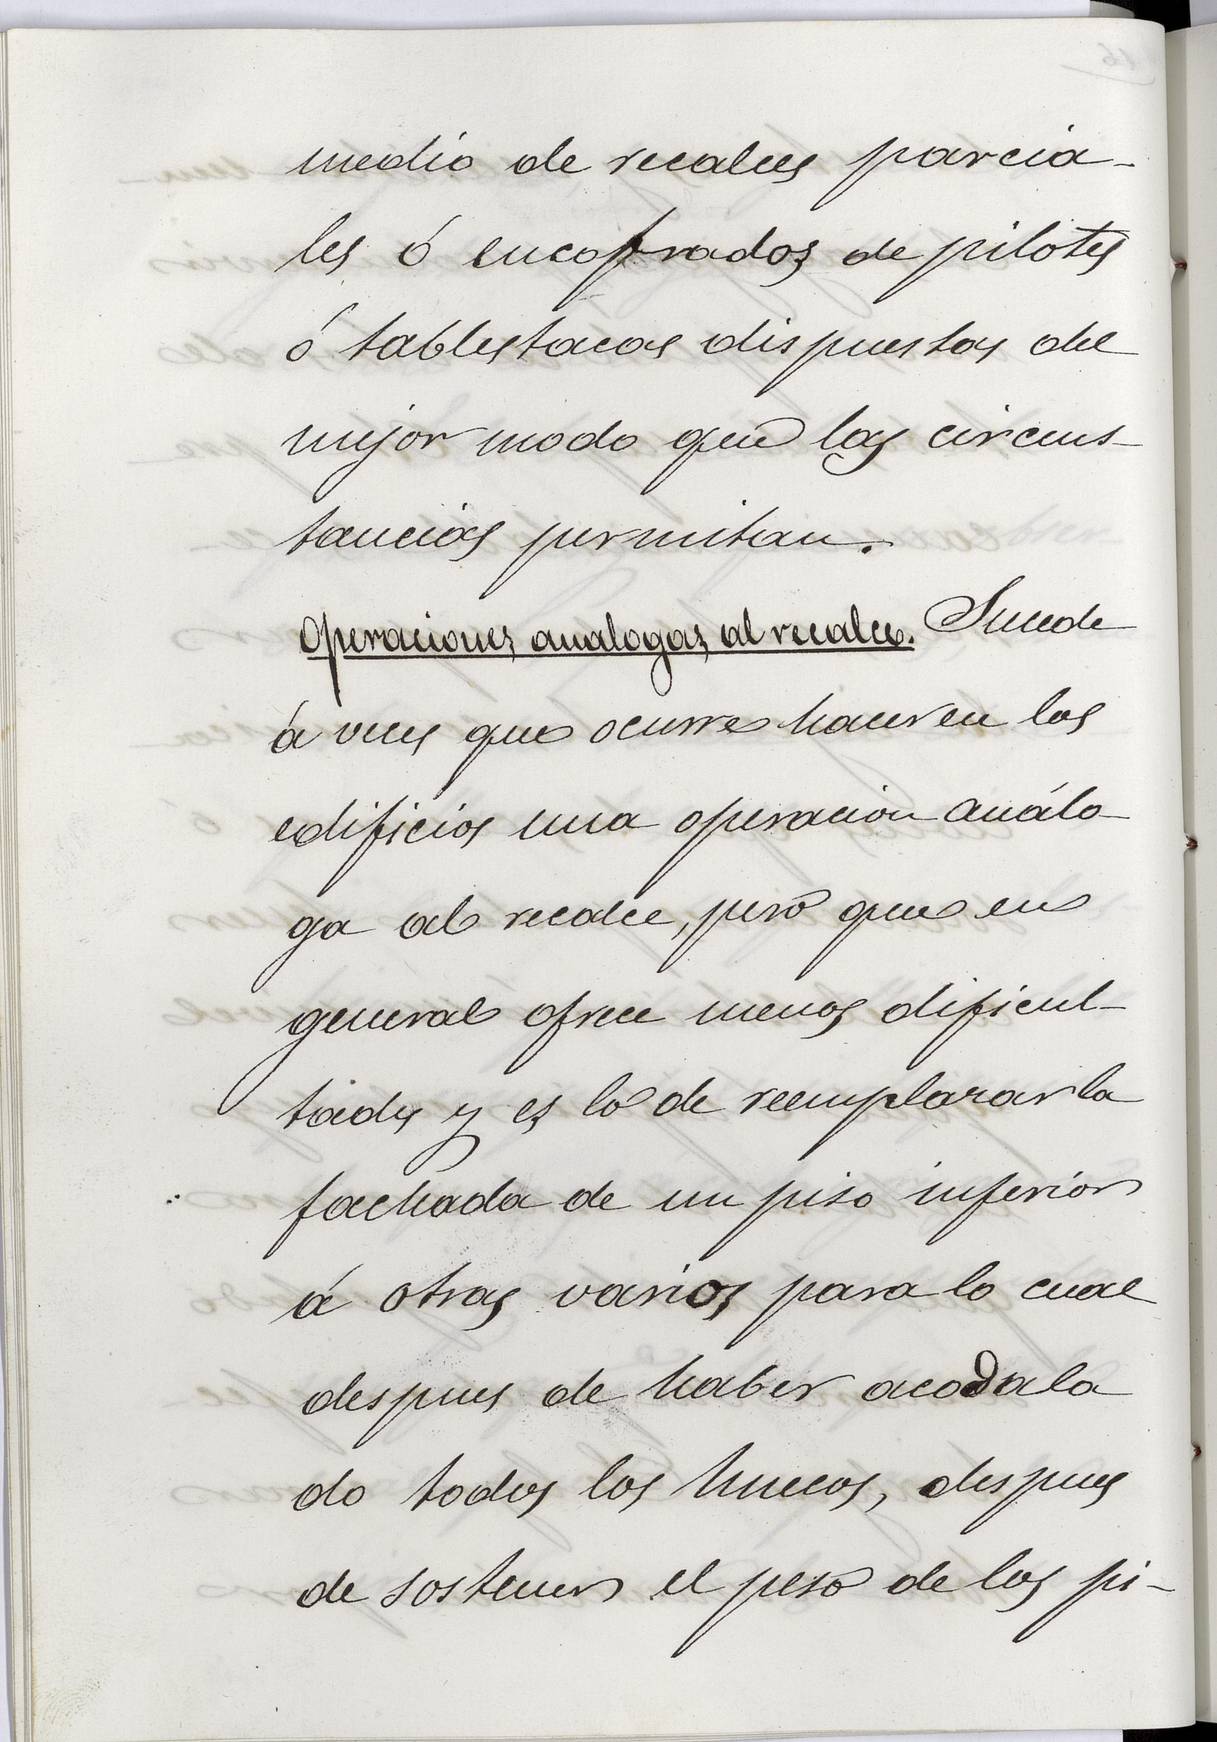 medio de recalces parcia-
les ó encofrados de pilotes
ó tablestacas dispuestas del
mejor modo que las circuns-
tancias permitan.
Operaciones analogas al recalce. Sucede
á veces que ocurre hacer en los
edificios una operacion análo-
ga al recalce, pero que en
general ofrece menos dificul-
tades y es la de reemplazar la
fachada de un piso inferior
á otros varios para lo cual
despues de haber acodala
do todos los huecos, despues
de sostener el peso de los pi-